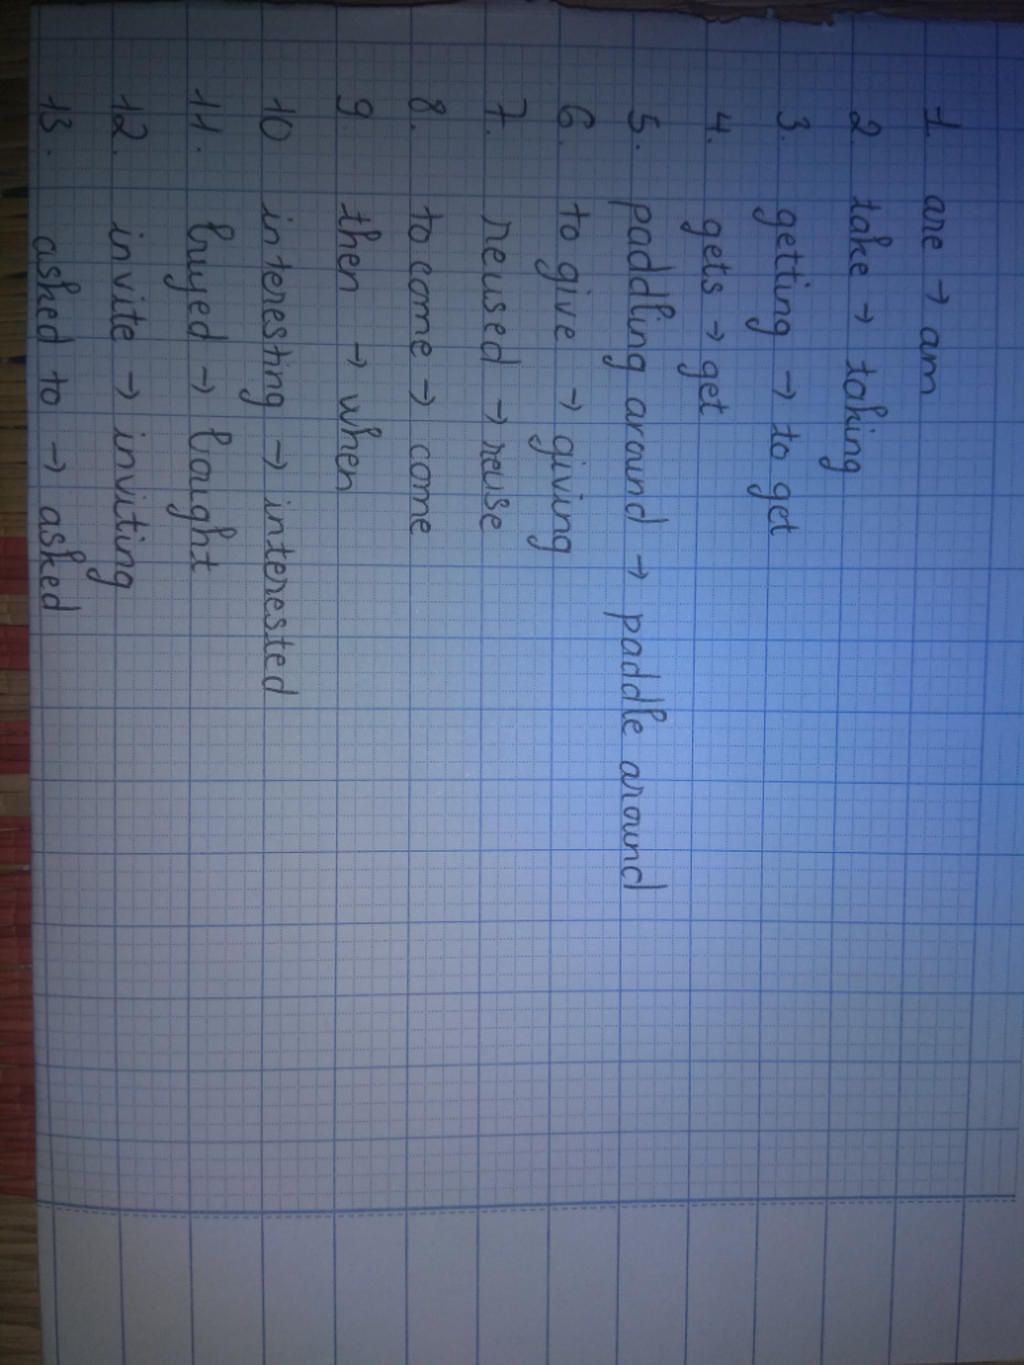 1. are → am
2. take → taking
3. getting → to get
4. gets → get
5. paddling around → paddle around
6. to give → giving
7. reused → reuse
8. to come → come
9. then → when
10 interesting → interested
11. buyed → bought
12. invite → inviting
13. asked to → asked